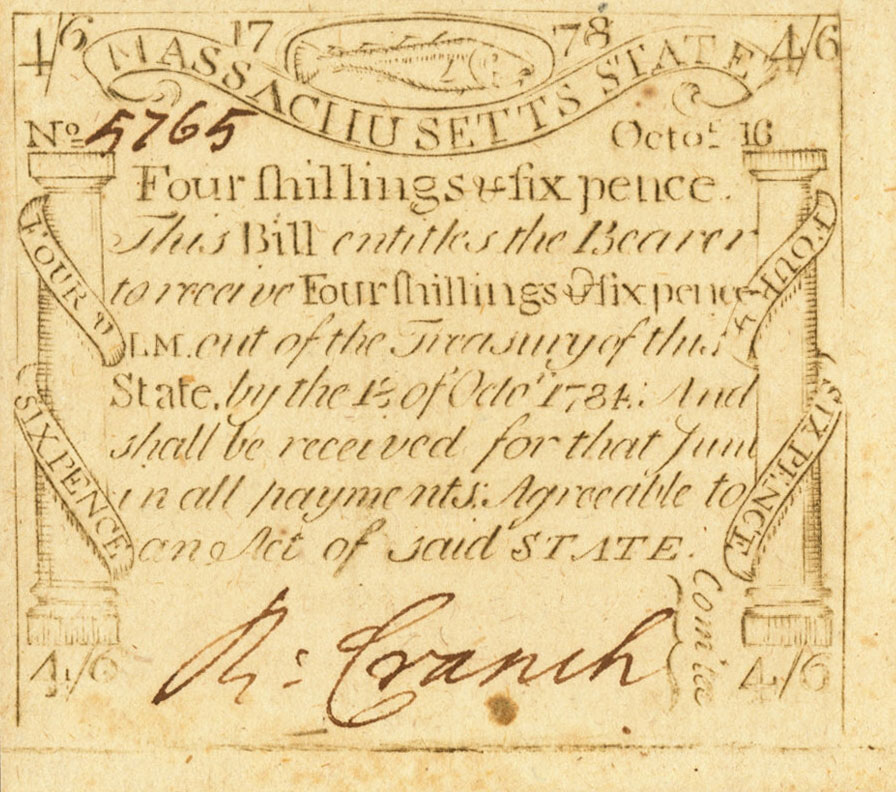 4/6 17 78 4/6
MASSACHUSETTS STATE
No 5765 Octor. 16
Four ſhillings & ſix pence.
This Bill entitles the Bearer
to receive Four ſhillings & ſix pence
LM. out of the Treasury of this
State, by the 1st of Octor 1784; And
shall be received for that Sum
in all payments; Agreeable to
an Act of said STATE.
FOUR &
SIXPENCE
FOUR &
SIXPENCE
Rd: Cranch
Com̄tee
4/6 4/6